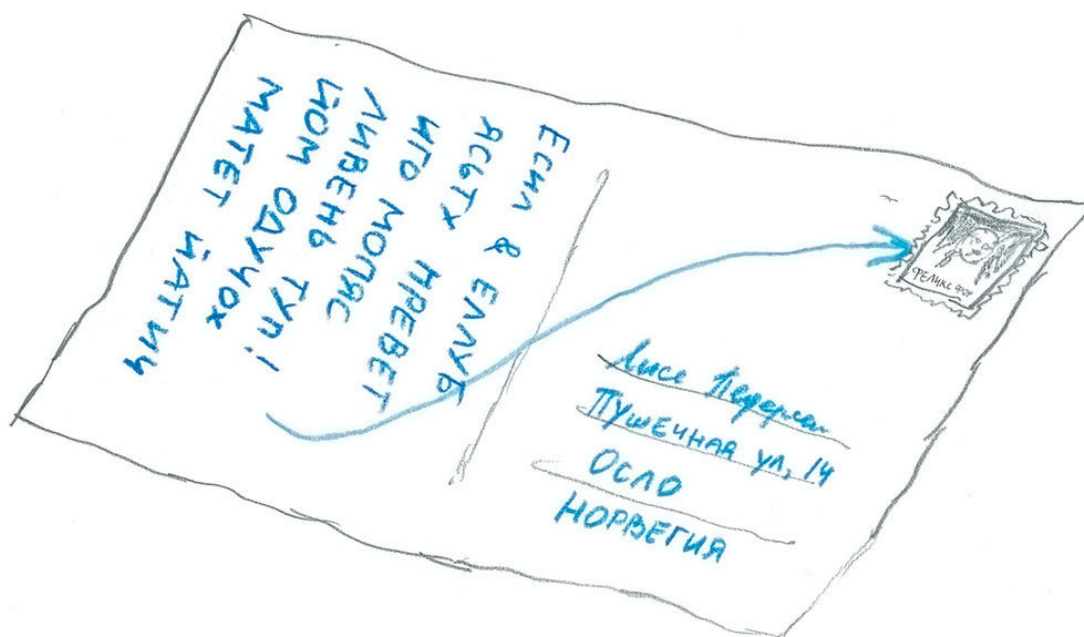 ЕСИЛ & ЕЛЛУБ
ЯСЬТУ НРЕВЕТ
ИГО МОПЯС
ЛИВЕНЬ ТУП!
ЙОМ ОДУЧОХ
МАТЕТ ЙАТИЧ
ФЕЛИКС ФОР
Лисе Педерсен
ПУШЕЧНАЯ УЛ, 14
ОСЛО
НОРВЕГИЯ